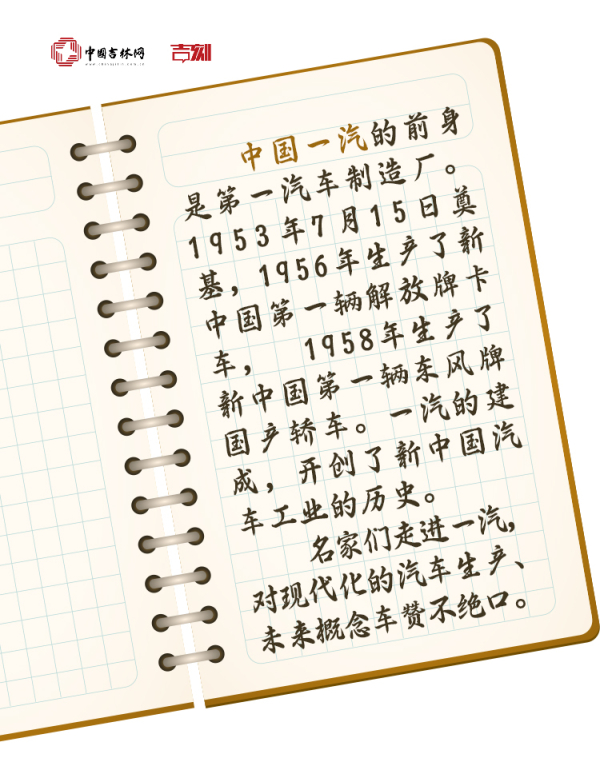 中国吉林网
吉刻
中国一汽的前身
是第一汽车制造厂。
1953年7月15日奠
基，1956年生产了新
中国第一辆解放牌卡
车， 1958年生产了
新中国第一辆东风牌
国产轿车。一汽的建
成，开创了新中国汽
车工业的历史。
名家们走进一汽，
对现代化的汽车生产、
未来概念车赞不绝口。